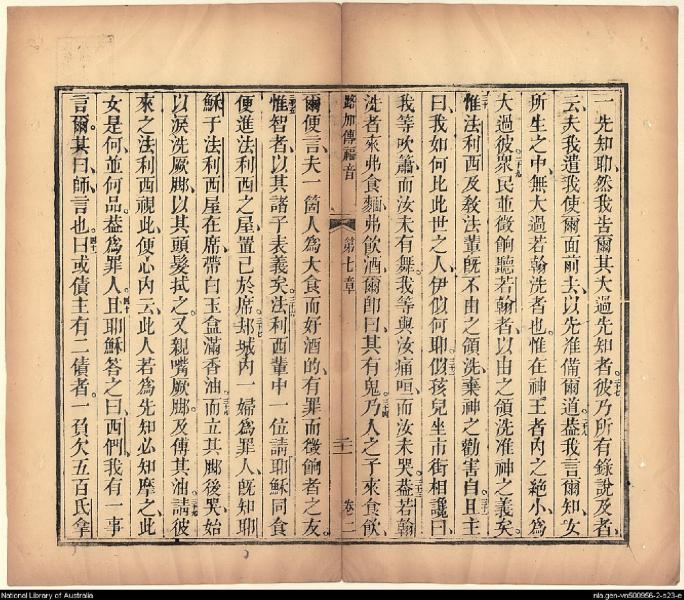 一先知耶然我告爾其大過先知者彼乃所有錄說及者
云夫我遣我使爾面前去以先准備爾道葢我言爾知女
所生之中無大過若翰洗者也惟在神王者內之絕小為
大過彼眾民並徵餉聽若翰者以由之領洗准神之義矣
惟法利西及教法輩旣不由之領洗棄神之勸害自且主
曰我如何比此世之人伊似何耶似孩兒坐市街相讒曰
我等吹簫而汝未有舞我等與汝痛咺而汝未哭葢若翰
洗者來弗食麵弗飲酒爾卽曰其有鬼乃人之子來食飲
路加傳福音 第七章 卷二
爾便言夫一箇人為大食而好酒的有罪而徵餉者之友
惟智者以其諸子表義矣法利西輩中一位請耶穌同食
便進法利西之屋置己於席却城內一婦為罪人旣知耶
穌于法利西屋在席帶白玉盒滿香油而立其腳後哭始
以淚洗厥腳以其頭髮拭之又親嘴厥腳及傅其油請彼
來之法利西視此便心內云此人若為先知必知摩之此
女是何並何品葢為罪人且耶穌答之曰西們我有一事
言爾其曰師言也曰或債主有二債者一負欠五百氏拿
National Library of Australia
nla.gen-vn500956-2-s23-e